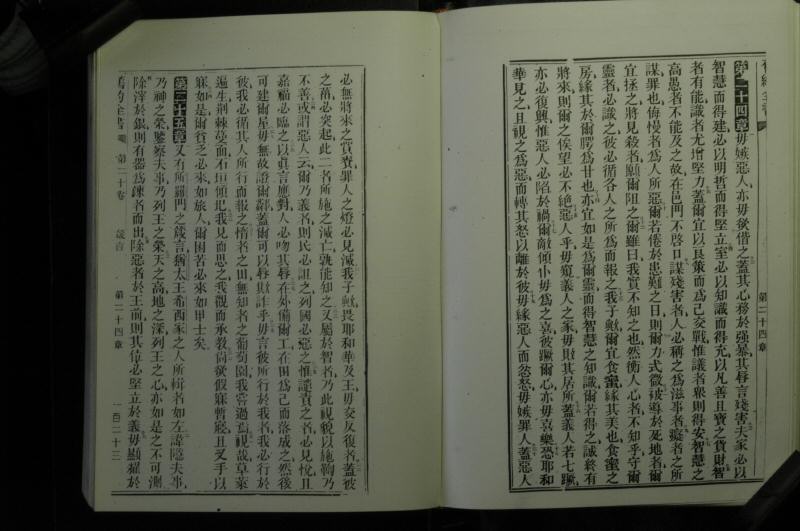 第二十四章
第二十四章毋嫉惡人亦毋欲偕之蓋其心務於强暴其唇言殘害夫家必以
智慧而得建必以明哲而得堅立室必以知識而得充以凡善且寶之貨財智
者有能識者尤增堅力蓋爾宜以良策而爲己交戰惟議者衆則得安智慧之
高愚者不能及之故在邑門不啓口謀殘害者人必稱之爲滋事者癡者之所
謀罪也侮慢者爲人所惡爾若倦於患難之日則爾力式微被導於死地者爾
宜拯之將見殺者願爾阻之爾雖曰我實不知之也然衡人心者不知乎守爾
靈者必識之彼必循各人之所爲而報之我子歟爾宜食蜜緣其美也食蜜之
房緣其於爾腭爲甘也亦宜如是爲爾靈而得智慧之知識爾若得之誠終有
將來則爾之俟望必不絕惡人乎毋窺義人之家毋財其居所蓋義人若七蹶
亦必復興惟惡人必陷於禍爾敵傾仆毋爲之喜彼蹶爾心亦毋喜樂恐耶和
華見之且視之爲惡而轉其怒以離於彼毋緣惡人而忿怒毋嫉罪人蓋惡人
必無將來之賞賚罪人之燈必見滅我子歟畏耶和華及王毋交反復者蓋彼
之菑必突起此二者所施之滅亡孰能知之又屬於智者乃此視貌以施鞫乃
不善或謂惡人云爾乃義者則民必詛之列國必惡之惟譴責之者必見悅且
嘉福必臨之以眞言應對人必吻其唇在外備爾工在田爲己而落成之然後
可建爾屋毋無故證爾鄰蓋爾可以唇欺詐乎毋言彼所行於我者我必行於
彼我必循其人所行而報之惰者之田無知者之葡萄園我嘗過焉視哉草萊
遍生荆棘蔓而石垣傾圯我見而思之我觀而承教尙欲假寐暫寢且叉手以
寐如是爾貧乏必來如旅人爾困若必來如甲士矣
第二十五章又有所羅門之箴言猶太王希西家之人所輯者如左諱隱夫事
乃神之榮鑒察夫事乃列王之榮天之高地之深列王之心亦如是之不可測
除滓於銀則有器爲鍊者而出除惡者於王前則其位必堅立於義毋顯耀於
舊約全書 第二十卷 箴言 第二十四章 一百二十三